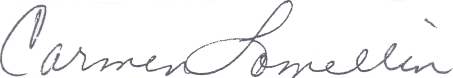 Carmen Lomellin